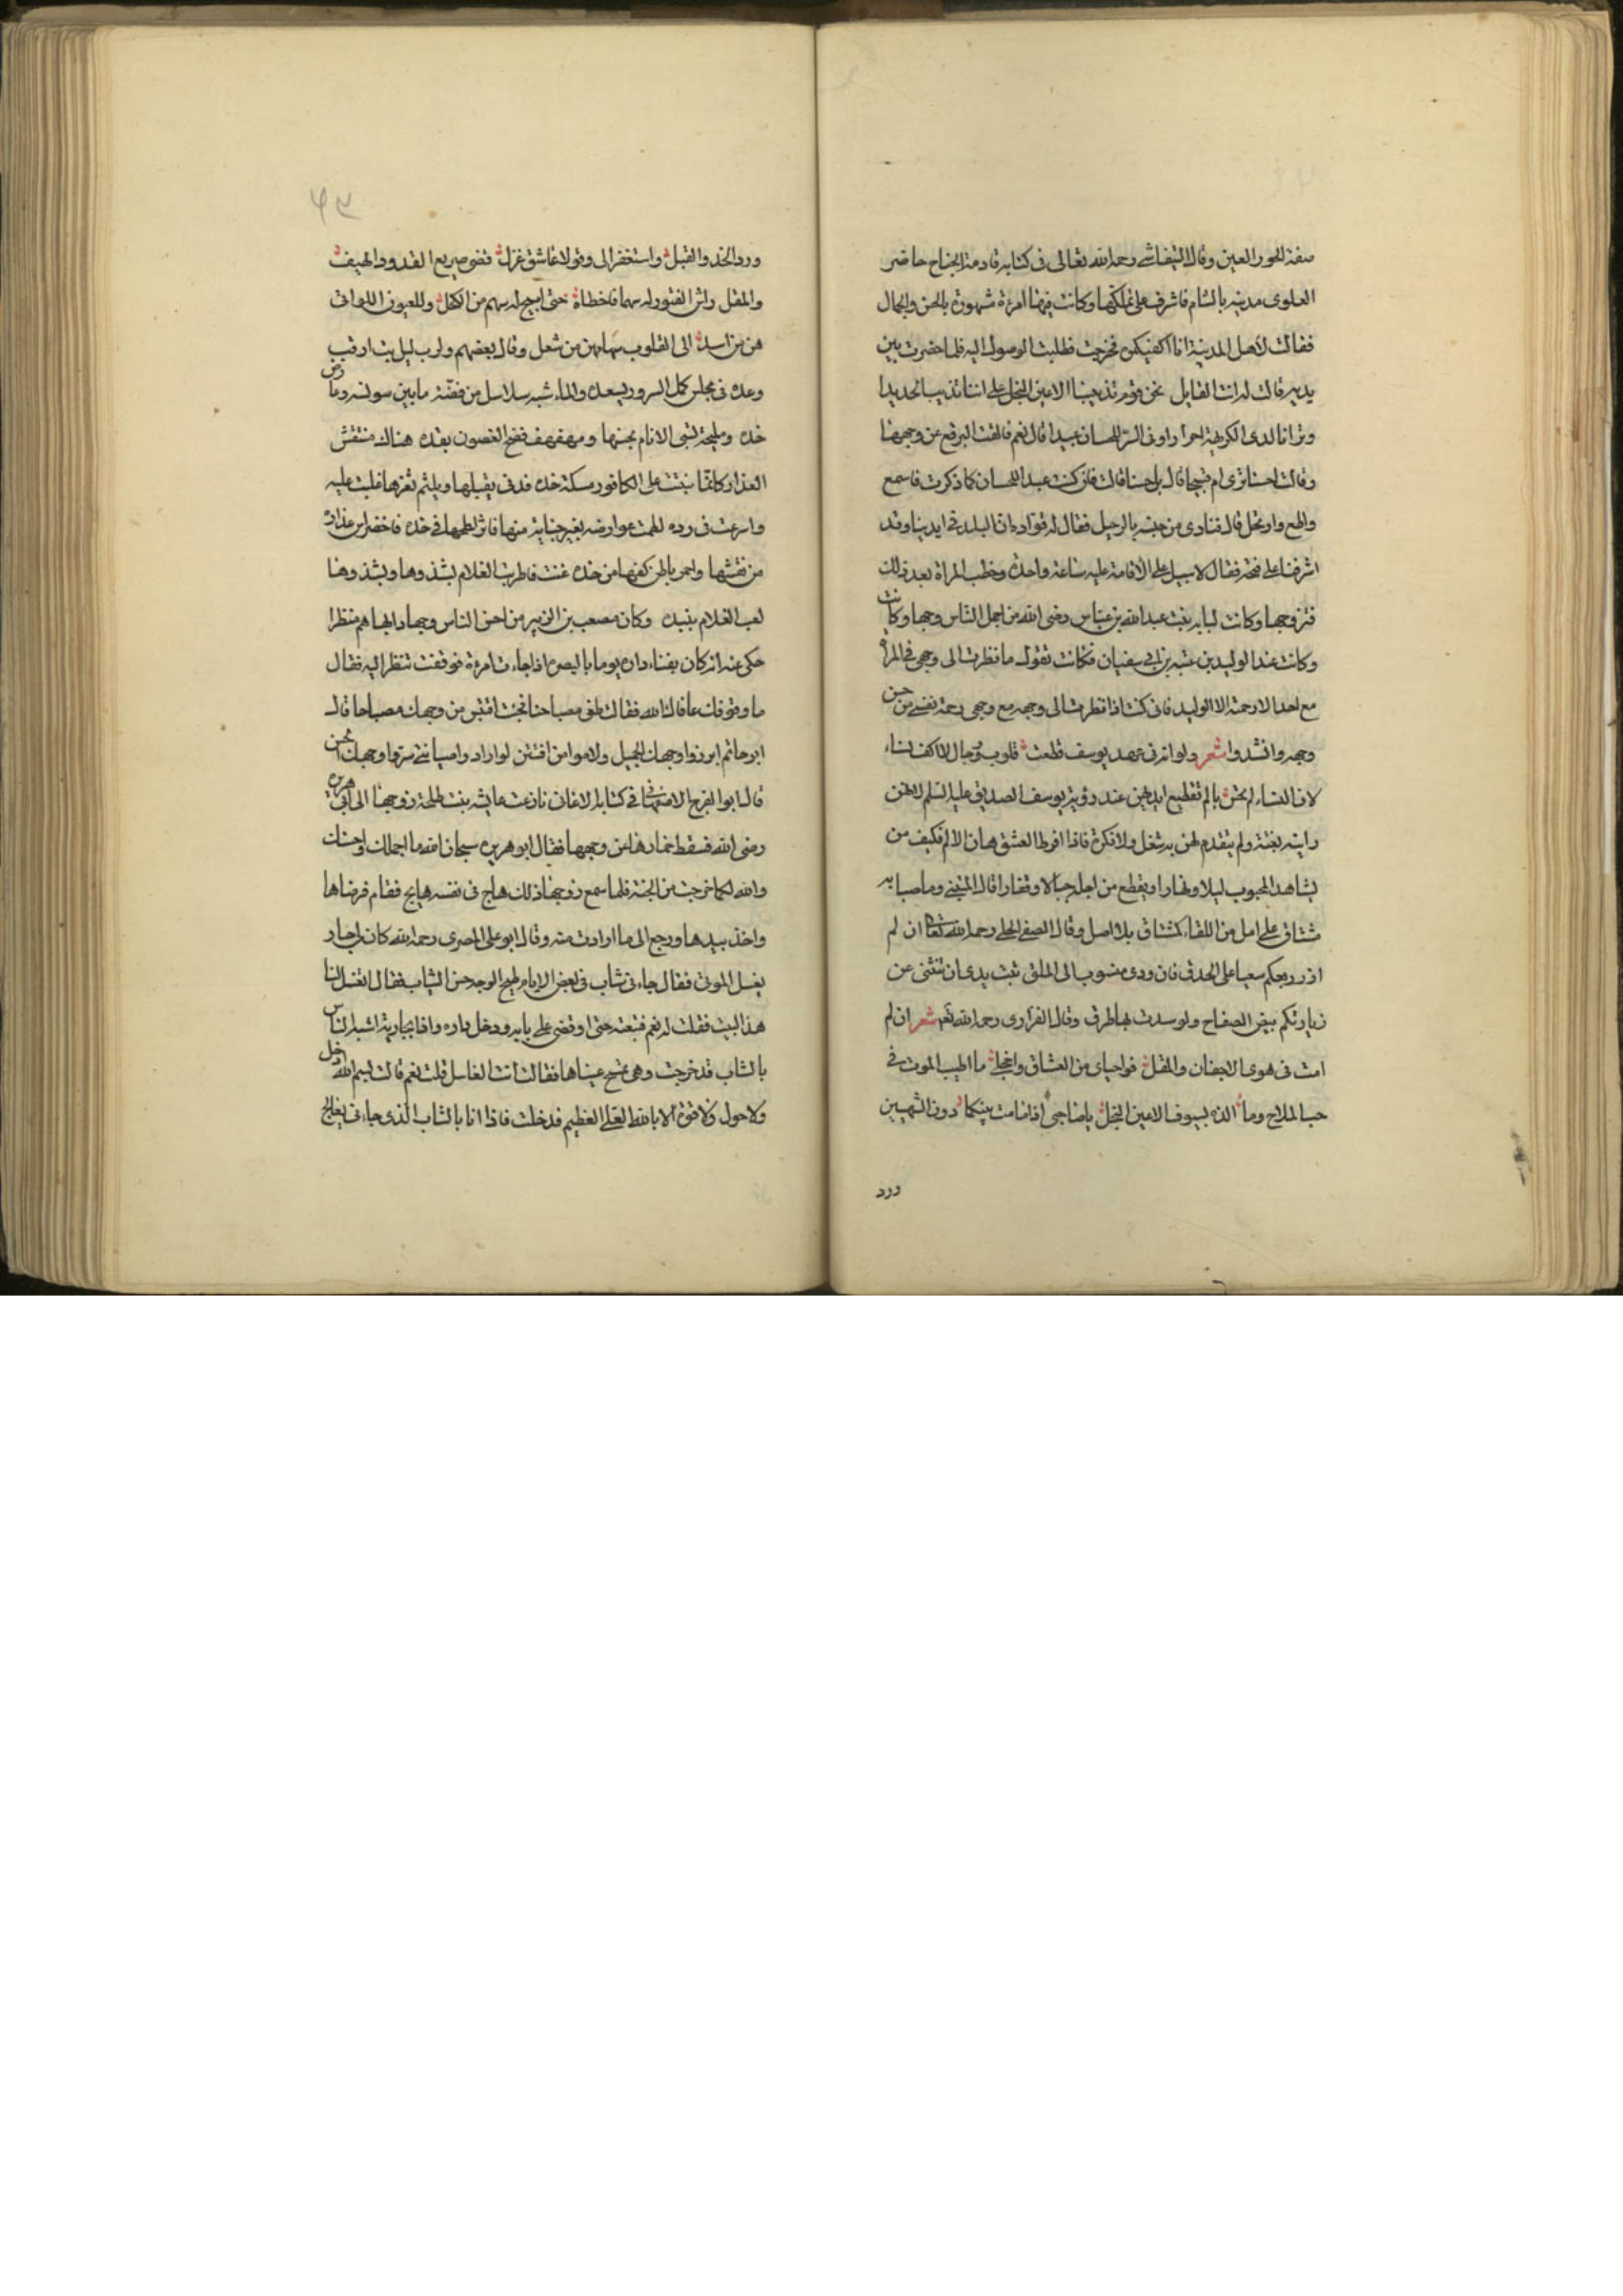 صفة الحور العين وقال التيفاشي رحمه الله تعالى في كتابه قادمة الجناح حاضر
العلوى مدينه بالشام فاشرف على تملكها وكانت فيها امرءة مشهورة بالحسن والجمال
فقالت لاهل المدينة انا اكفيكم فخرجت فطلبت الوصول اليه فلما حضرت بين
يديه قالت له انت القايل نحن قوم تذيبنا الاعين النجل على اننا نذيب الحديدا
وترانا لدى الكريهة احرارا وفى السر للحسان عبيدا قال نعم فالقت البرقع عن وجهها
وقالت احسنا ترى ام قبيحا قال بل حسنا قالت فان كنت عبدا للحسان كما ذكرت فاسمع
واطع وارتحل قال فنادى من حينه بالرحيل فقال له قواده ان البلد في ايدينا وقد
اشرفنا على فتحه فقال لا سبيل على الاقامة عليه ساعة واحدة وخطب المراة بعد ذلك
فتزوجها وكانت لبابه بنت عبد الله بن عباس رضى الله من اجمل الناس وجها وكانت
وكانت عند الوليد بن عتبه بن ابي سفيان فكانت تقول ما نظرت الى وجهى في المراة
مع احد الا رحمته الا الوليد فانى كنت اذا نظرت الى وجهه مع وجهى رحمة نفسى من حسن
وجهه وانشدوا شعر ولو انه فى عهد يوسف قطعت قلوب رجال لا اكف نساء
لان النساء لم يحسن بالم تقطيع ايديهن عند رؤية يوسف الصديق عليه السلم لانهن
راينه بغتة ولم يتقدم لهن به شغل ولا فكرة فاذا افرط العشق هان الالم فكيف من
يشاهد المحبوب ليلا ونهارا ويقطع من اجله جبالا وقفارا قال المتنبي وما صبابه
مشتاق على امل من اللقاء كمشتاق بلا امل وقال الصفي الحلى رحمه الله تعالى ان لم
ازر ربعكم سعيا على الحدق فان ودى منسوب الى الملق تبت يدى ان تثنى عن
زيارتكم بيض الصفاح ولو سدت بها طرق وقال الفزارى رحمه الله تعه شعر ان لم
امت فى هوى الاجفان والمقل فواحياى من العشاق واخجلى ما اطيب الموت في
حب الملاح وما الذه بسيوف الاعين النجل يا صاحبى اذا ما مت بينكما دون الشهيين
ورد
٤٣
ورد الخد والقبل واستغفرا لى وقولا عاشق غزل قضى صريع القدود الهيف
والمقل رامى الفتور له سهما فاخطاه حتى اتيح له سهم من الكحل وللعيون اللواتى
هن من اسد الى القلوب سهامهن من ثعل وقال بعضهم ولرب ليل بت ارقب
وعده فى مجلس كمل السرور بسعده والماء شبه سلاسل من فضة ما بين سوسنه وما ورد
خده ومليحة تسبى الانام بحسنها ومهفهف فضح الغصون بقده هناك منتقش
العذار كانما نبتت على الكافور مسكة خده فدنى يقبلها ويلثم ثغرها فابت عليه
واسرعت فى رده لطمت عوارضه بغير جناية منها فاثر لطمها في خده فاخضر اس عذاره
من نقشها واحمر باطن كفها من خده غنت فاطربت الغلام بشذوها وبشذوها
لعب الغلام بنبده وكان مصعب بن الزبير من احسن الناس وجها وابهاهم منظرا
حكى عنه انه كان بفناء داره يوما بالبصرة اذا جاءت امرءة فوقفت تنظر اليه فقال
ما وقوفك عافاك الله فقالت طفى مصباحنا فجئت اقتبس من وجهك مصباحا قال
ابو حاتم ابرزوا وجهك الجميل ولاموا من افتتن لو ارادوا صيانتى ستروا وجهك الحسن
قال ابو الفرج الاصفهانى في كتابه الاغان نازعت عايشه بنت طلحة زوجها الى ابى هريرة
رضى الله فسقط خمارها عن وجهها فقال ابو هريرة سبحان الله ما اجملك واحسنك
والله لكانما خرجت من الجنة فلما سمع زوجها ذلك هاج فى نفسه هايج فقام فرضاها
واخذ بيدها ورجع الى ما ارادت منه وقال ابو على المصرى رحمه الله كان لى جار
يغسل الموتى فقال جاءنى شاب فى بعض الايام مليح الوجه حسن الشياب فقال اتغسل لنا
هذا البيت فقلت له نعم فتبعته حتى اوقفنى على بابه ودخل داره واذا بجارية اشبه الناس
بالشاب قد خرجت وهى تمسح عيناها فقالت انت الغاسل قلت نعم قالت بسم الله ادخل
ولا حول ولا قوة الا بالله العلى العظيم فدخلت فاذا انا بالشاب الذى جاءنى يعالج